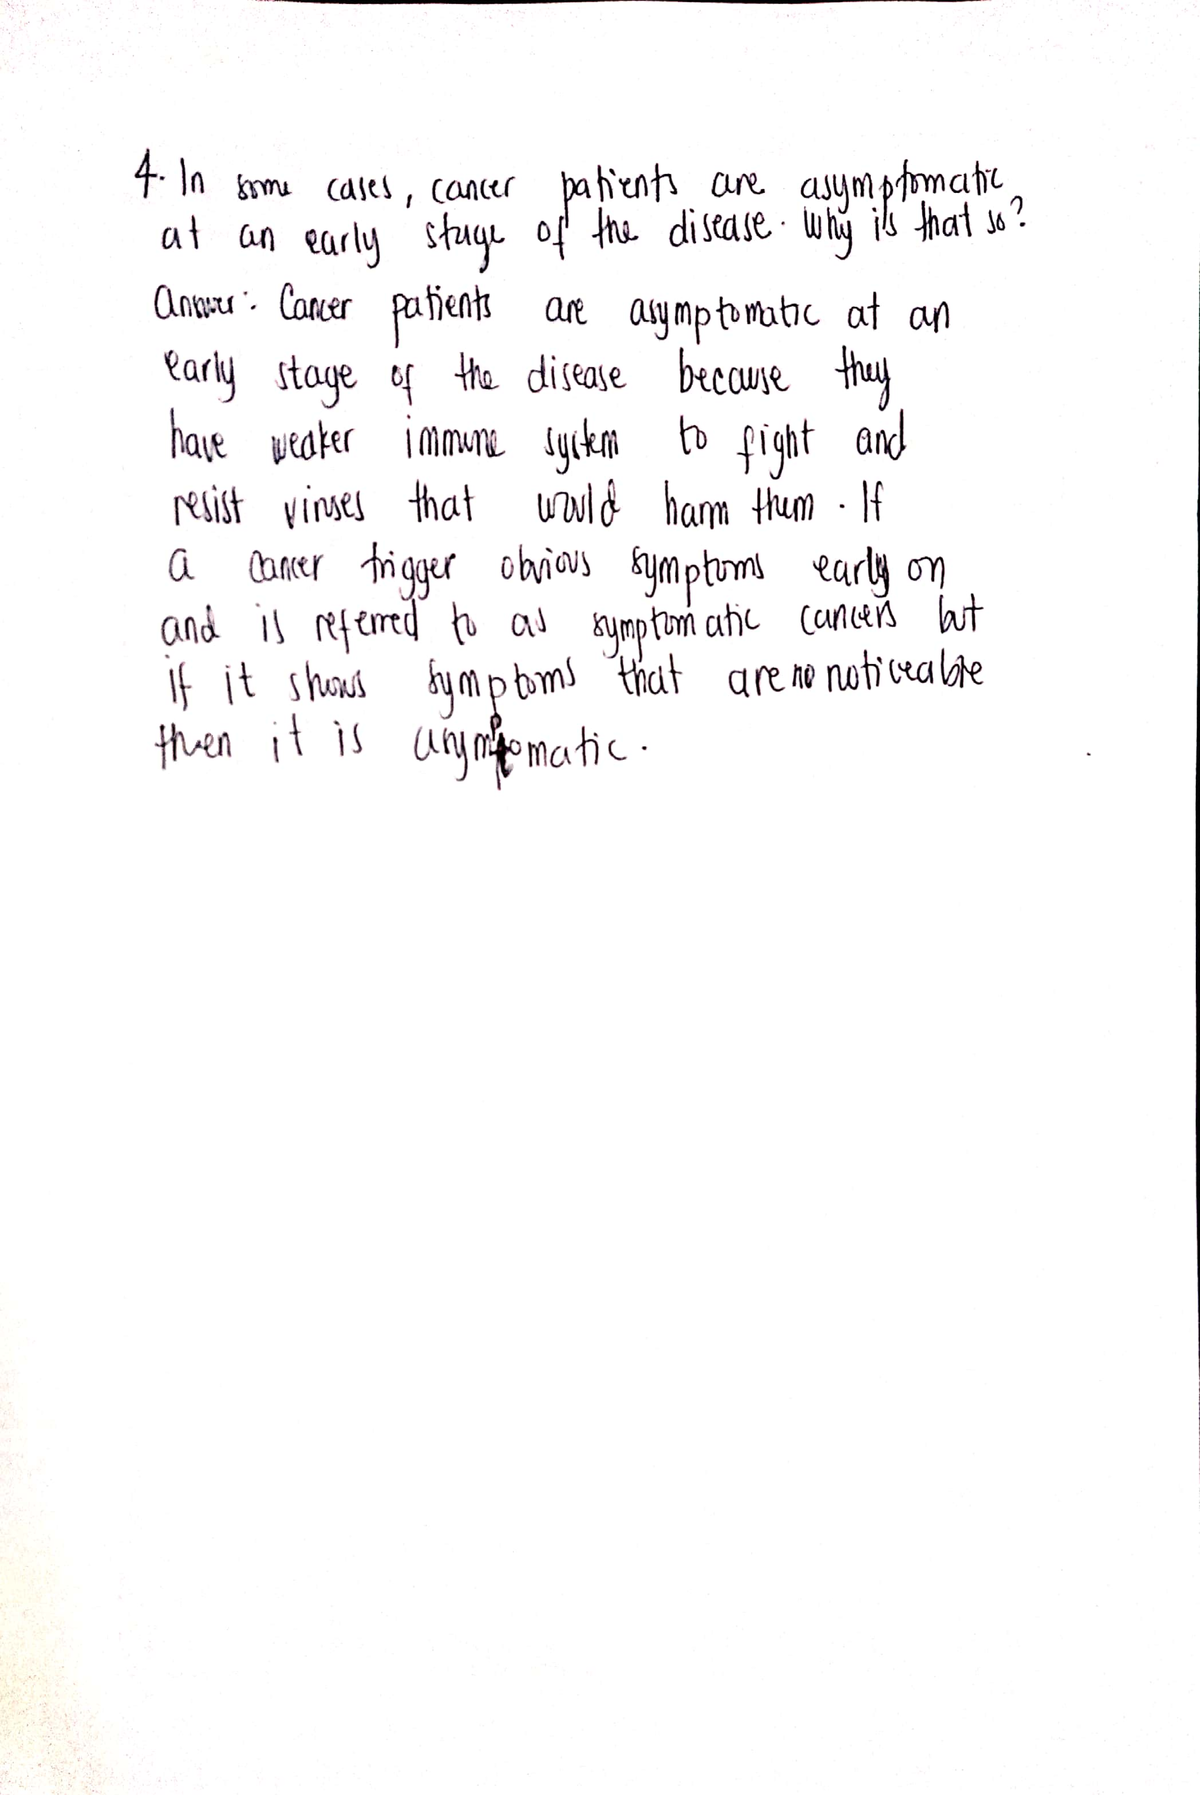 4. In some cases, cancer patients are asymptomatic
at an early stage of the disease. Why is that so?
Answer: Cancer patients are asymptomatic at an
early stage of the disease because they
have weaker immune system to fight and
resist viruses that would harm them. If
a cancer trigger obvious symptoms early on
and is referred to as symptomatic cancers but
if it shows symptoms that are no noticeable
then it is asymptomatic.